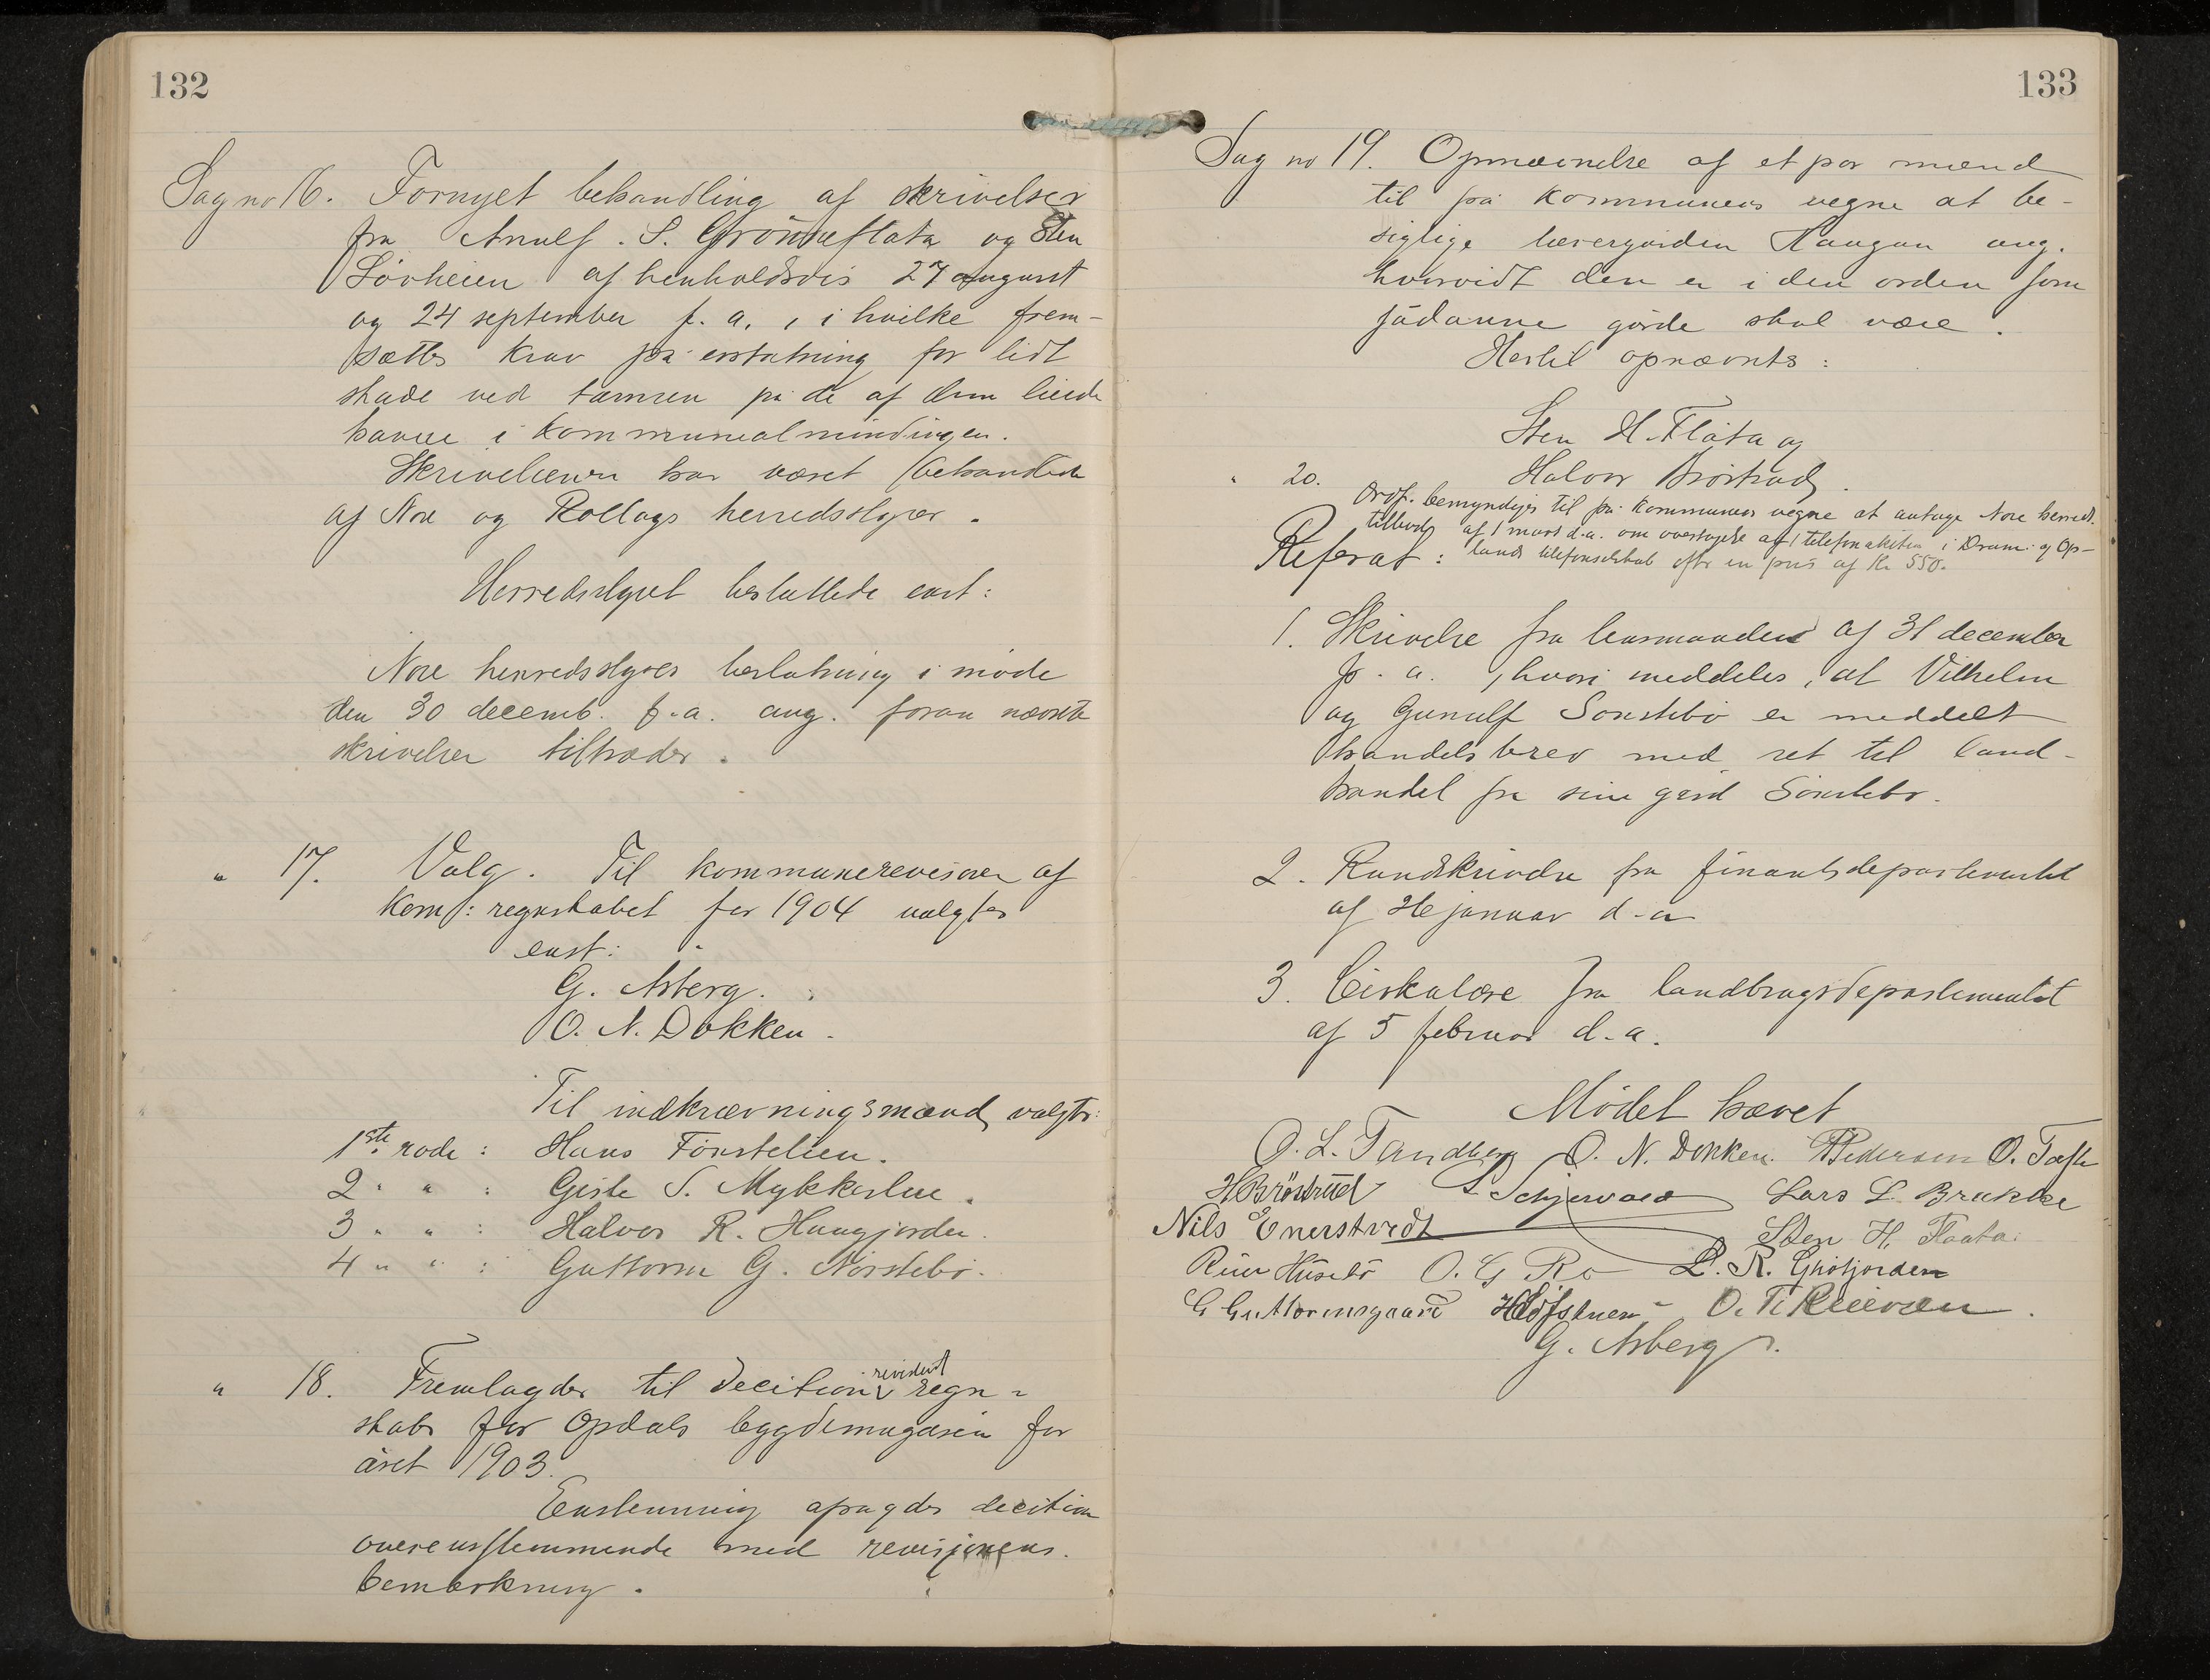 132
Sag no 16. Fornyet behandling af skrivelser
fra Arnulf. S. Grönneflata og Sten
Lövheien af henholdsvis 27 august
og 24 september f. a., i hvilke frem-
sættes krav på erstatning for lidt
skade ved tamren på de af dem leiede
havne i kommunealmindingen.
Skrivelserne har været behandlede
af Nore og Rollags herredsstyrer.
Herredsstyret besluttede enst:
Nore herredsstyres beslutning i møde
den 30 decemb. f.a. ang. foran nævnte
skrivelser tiltrædes.
" 17. Valg. Til kommunerevisorer af
Komf: regnskabet for 1904 valgtes
enst:
G. Asberg.
O. N. Dokken.
Til indkrævningsmænd valgtes:
1ste rode: Hans Fönstelien.
2 " " : Gisle S. Mykkestue.
3 " " : Halvor R. Haugjorden.
4 " " : Guttorm G. Nörstebö.
" 18. Fremlagdes til decition revidert regn-
skabs for Opdals bygdemagasin for
året 1903.
Enstemmig afsagdes decition
overensstemmende med revisjonens
bemærkning.
133
Sag no 19. Opnævnelse af et par mænd
til på kommunens vegne at be-
sigtige lærergården Haugan ang.
hvorvidt den er i den orden som
sådanne gårde skal være.
Hertil opnævntes:
Sten H. Flåta og
Halvor Brøstrud.
" 20. Ordf. bemyndiges til på kommunens vegne at antage Nore herreds
tilbud af 1 mars d.a. om overtagelse af 1 telefonaktie i Dram: og Op-
lands telefonselskab efter en pris af Kr 550.
Referat:
1. Skrivelse fra lensmanden af 31 december
f. a., hvori meddeles, at Vilhelm
og Gunulf Sönstebö er meddelt
handelsbrev med ret til land-
handel fra sin gård Sönstebö.
2. Rundskrivelse fra finantsdepartementet
af januar d.a
3. Cirkulære fra landbrugsdepartementet
af 5 februar d.a.
Mødet hævet
O. L. Tandberg O. N. Dokken. Pedersen O. Tofte
H Bröstrud Schjervold Lars L. Brukke
Nils Enerstvedt Sten H. Flaata
Reier Husebö O. G. Ro L. R. Gjötjorden
G Guttormsgaard H Löfsthuen O. T. Kleiven.
G. Asberg.